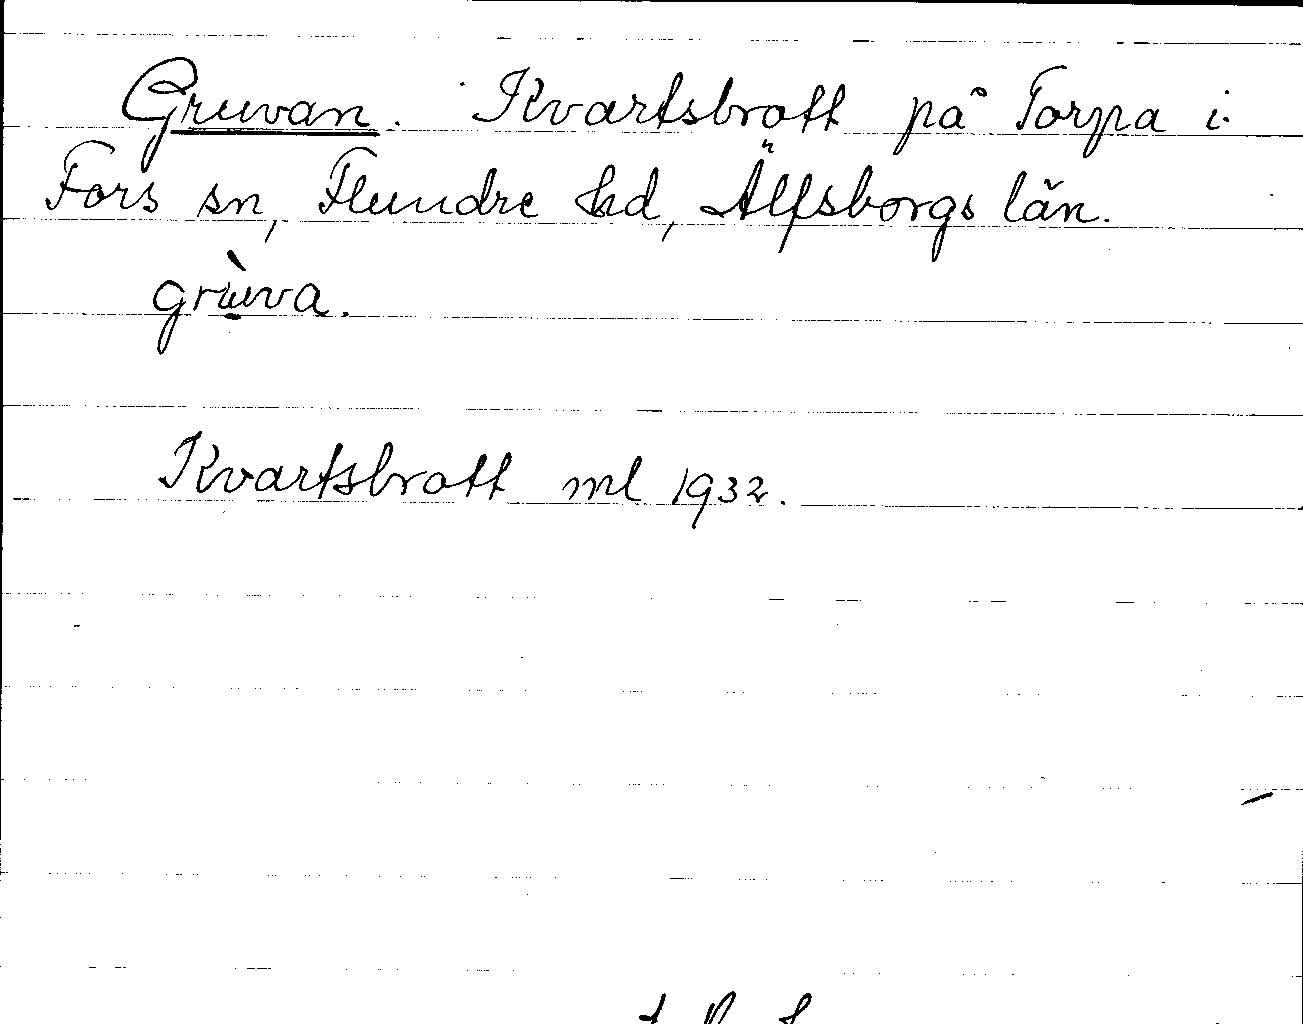 Gruvan. Kvartsbrott på Torpa i
Fors sn, Flundre hd, Älfsborgs län.
grù̱va.
Kvartsbrott ml 1932.